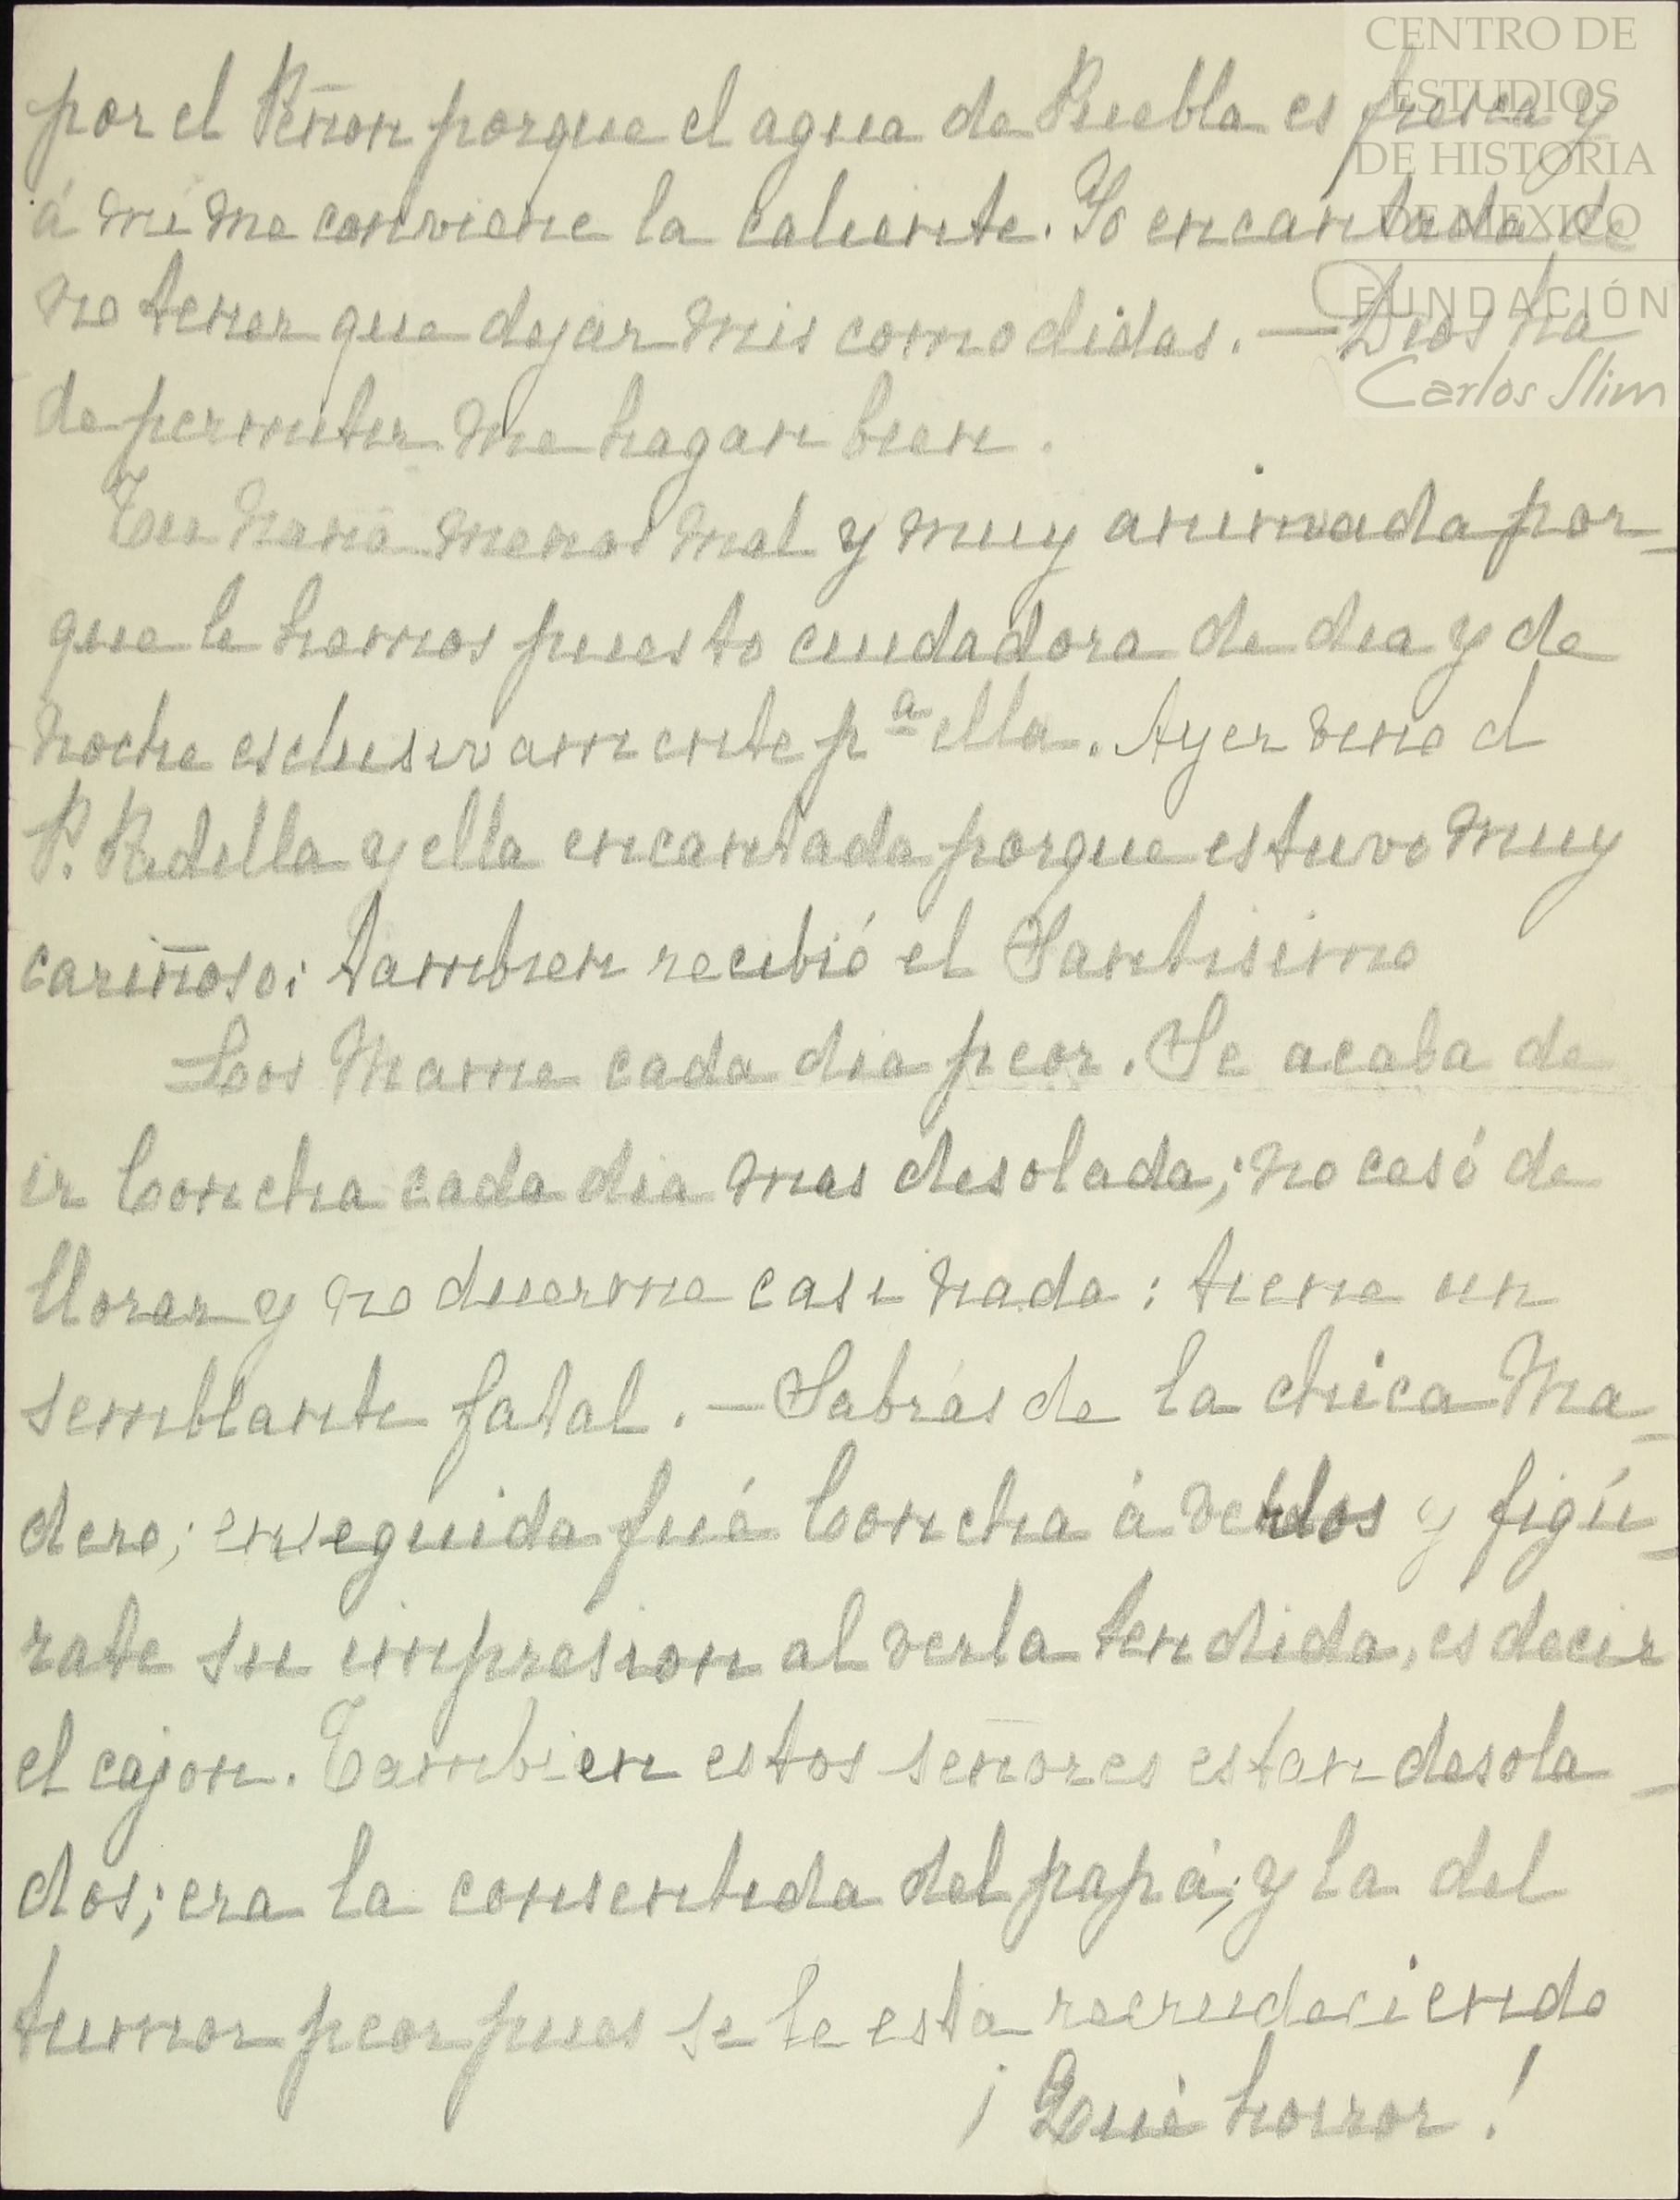 CENTRO DE
ESTUDIOS
DE HISTORIA
DE MEXICO
FUNDACIÓN
Carlos Slim
por el Peñon porque el agua de Puebla es fresca y
á mi me conviene la caliente. Yo encantada de
no tener que dejar mis comodidas. — Dios ha
de permitir me hagan bien.
Tu Nana menos mal y muy animada por-
que le hemos puesto cuidadora de dia y de
noche esclusivamente pª ella. Ayer vino el
P. Padilla y ella encantada porque estuvo muy
cariñoso; tambien recibió el Santisimo
Los Mame cada dia peor. Se acaba de
ir Concha cada dia mas desolada; no cesó de
llorar y no duerme casi nada: tiene un
semblante fatal. — Sabrás de la chica Ma-
dero; enseguida fué Concha á verlos y figú-
rate su impresion al verla tendida, es decir
el cajon. Tambien estos señores estan desola-
dos; era la consentida del papá; y la del
tumor peor pues se le está recrudeciendo
¡Qué horror!